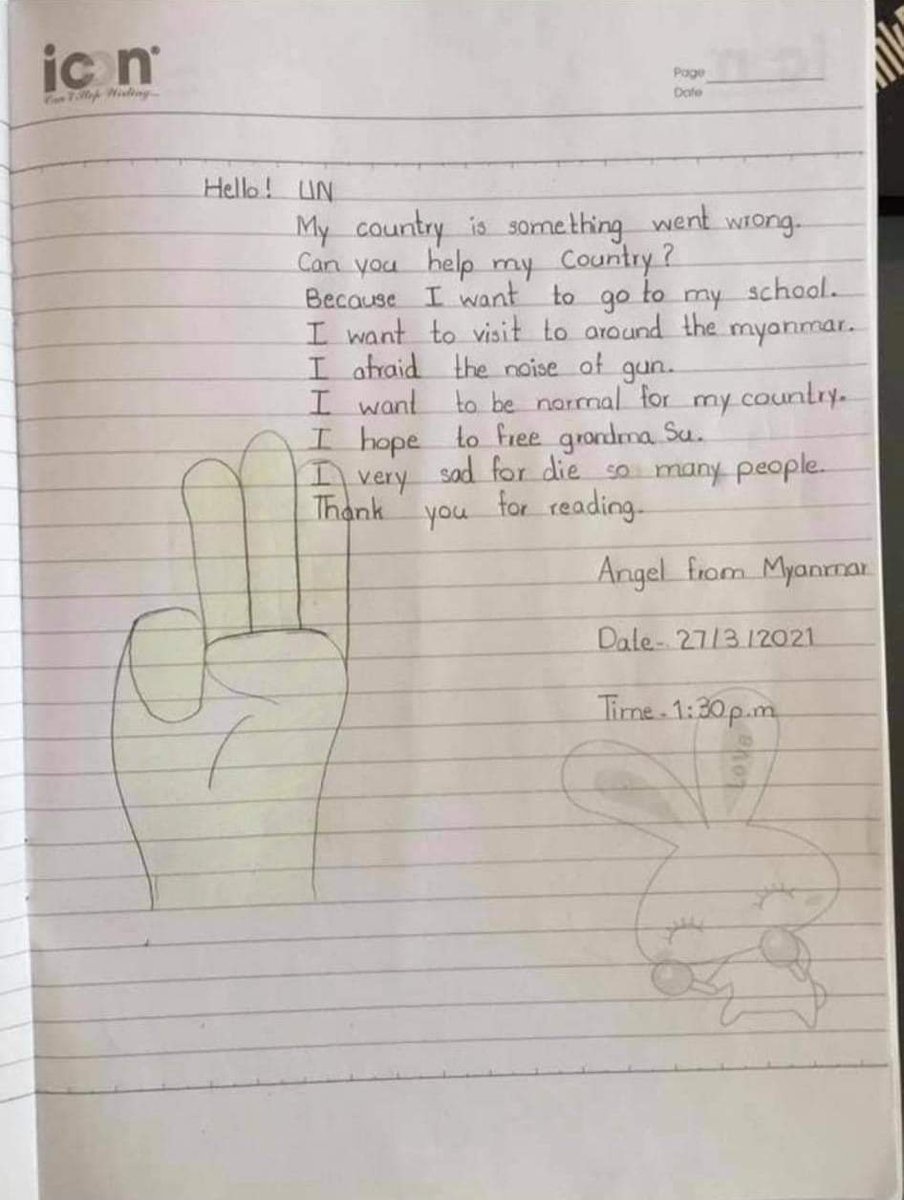 icon
Can't Stop Writing...
Page
Date
Hello! UN
My country is something went wrong.
Can you help my Country?
Because I want to go to my school.
I want to visit to around the myanmar.
I afraid the noise of gun.
I want to be normal for my country.
I hope to free grandma Su.
I very sad for die so many people.
Thank you for reading.
Angel from Myanmar
Date- 27/3/2021
Time-1:30p.m
Love